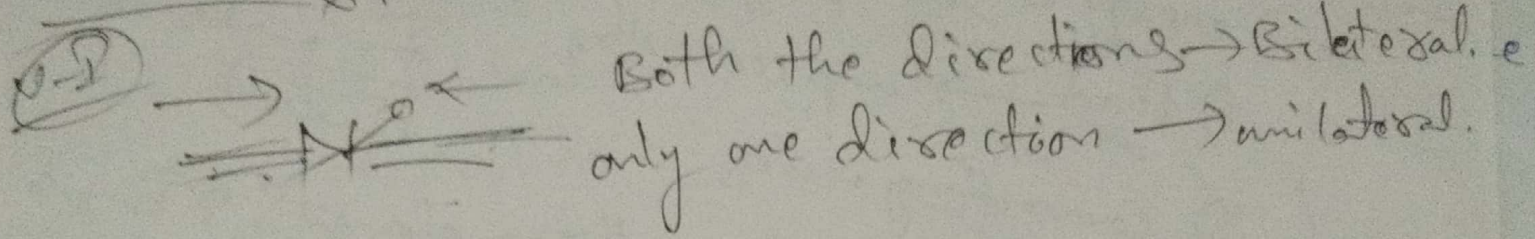 Both the directions → Bilateral. e
only one direction → unilateral.